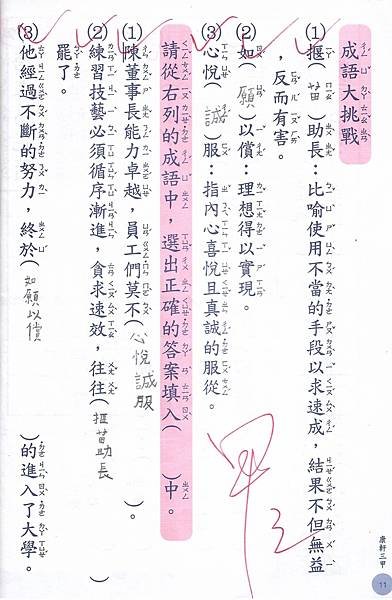 成語大挑戰
(1)揠(苗)助長：比喻使用不當的手段以求速成，結果不但無益
，反而有害。
(2)如(願)以償：理想得以實現。
(3)心悅(誠)服：指內心喜悅且真誠的服從。
請從右列的成語中，選出正確的答案填入(　)中。
(1)陳董事長能力卓越，員工們莫不(心悅誠服)。
(2)練習技藝必須循序漸進，貪求速效，往往(揠苗助長)
罷了。
(3)他經過不斷的努力，終於(如願以償)的進入了大學。
康軒三甲
11